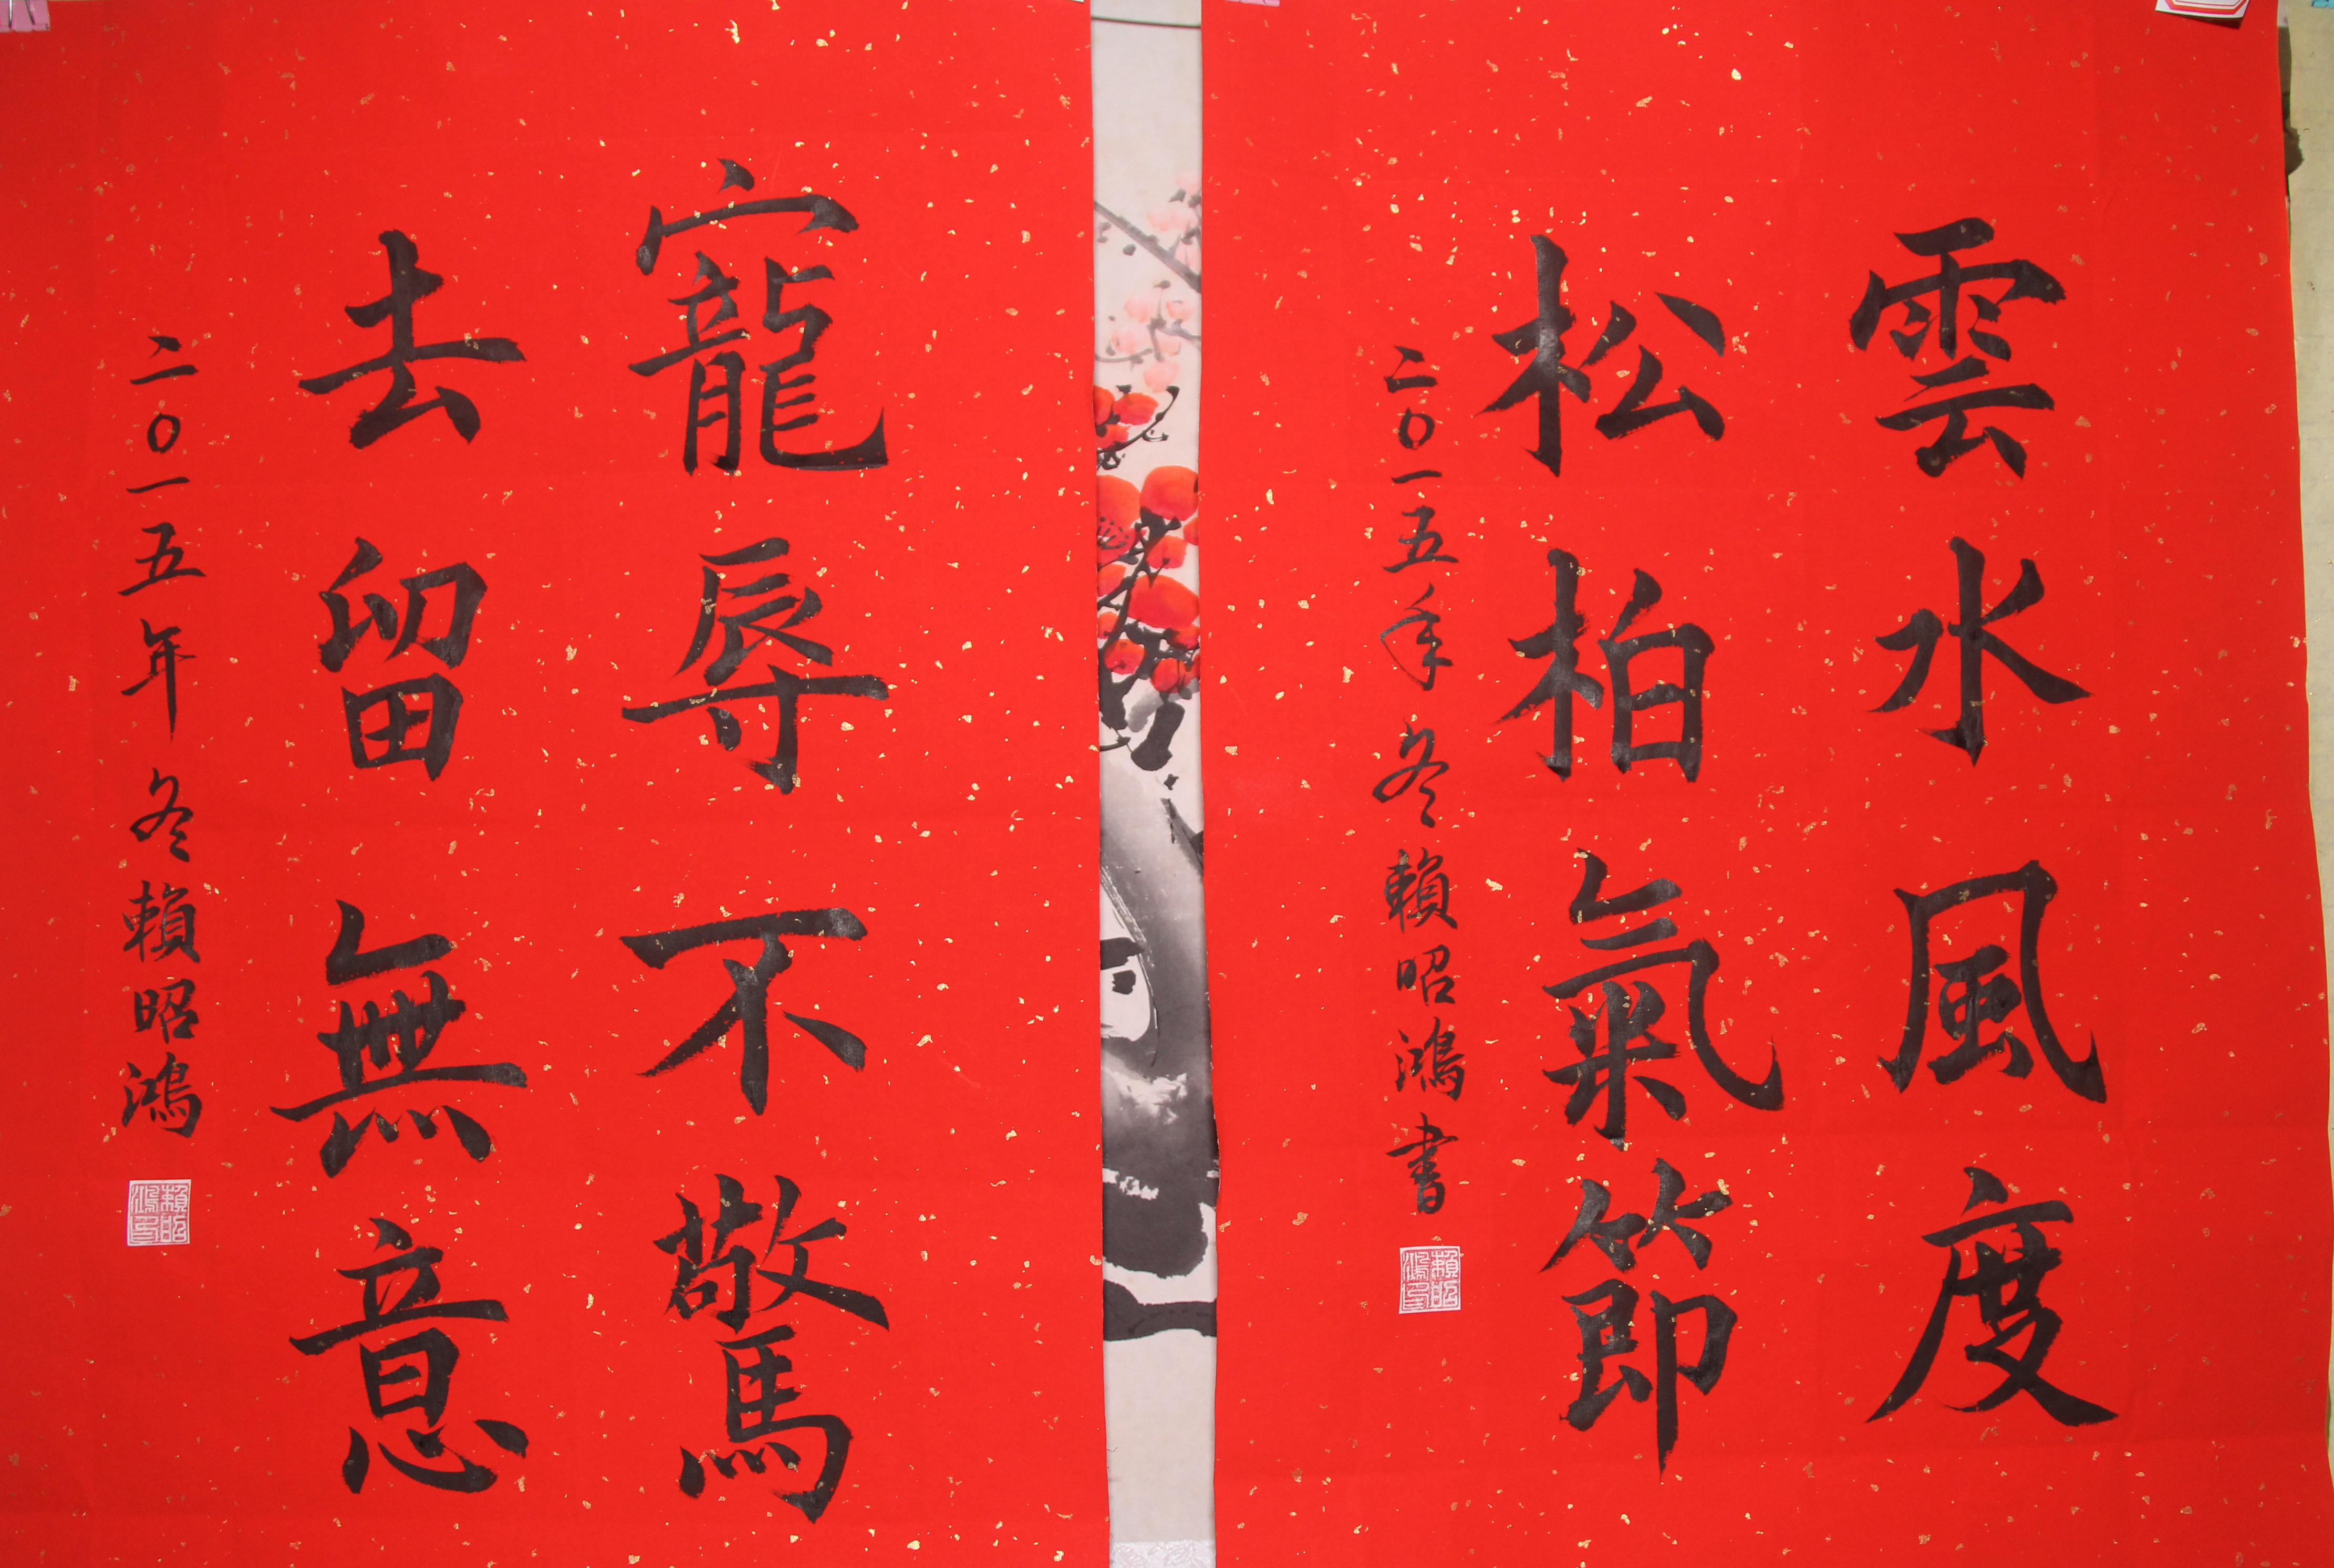 雲水風度
松柏氣節
二〇一五年冬賴昭鴻書
賴昭鴻印
寵辱不驚
去留無意
二〇一五年冬賴昭鴻
賴昭鴻印